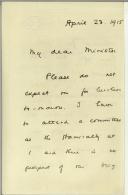 April 23. 1915
My dear
Please do not
expect me for luncheon
to-morrow. I have
to attend a committee
at the Admiralty at
1 and there is no
prospect of our being